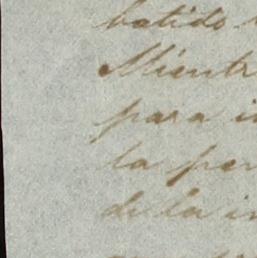 batido
Mientr
para i
la per
de la in